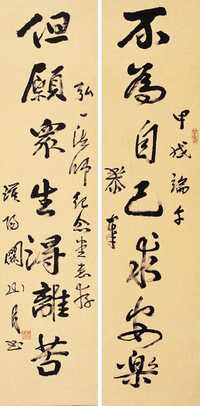 不為自己求安樂
甲戌端午
恭筆
但願眾生得離苦
弘一法師紀念堂惠存